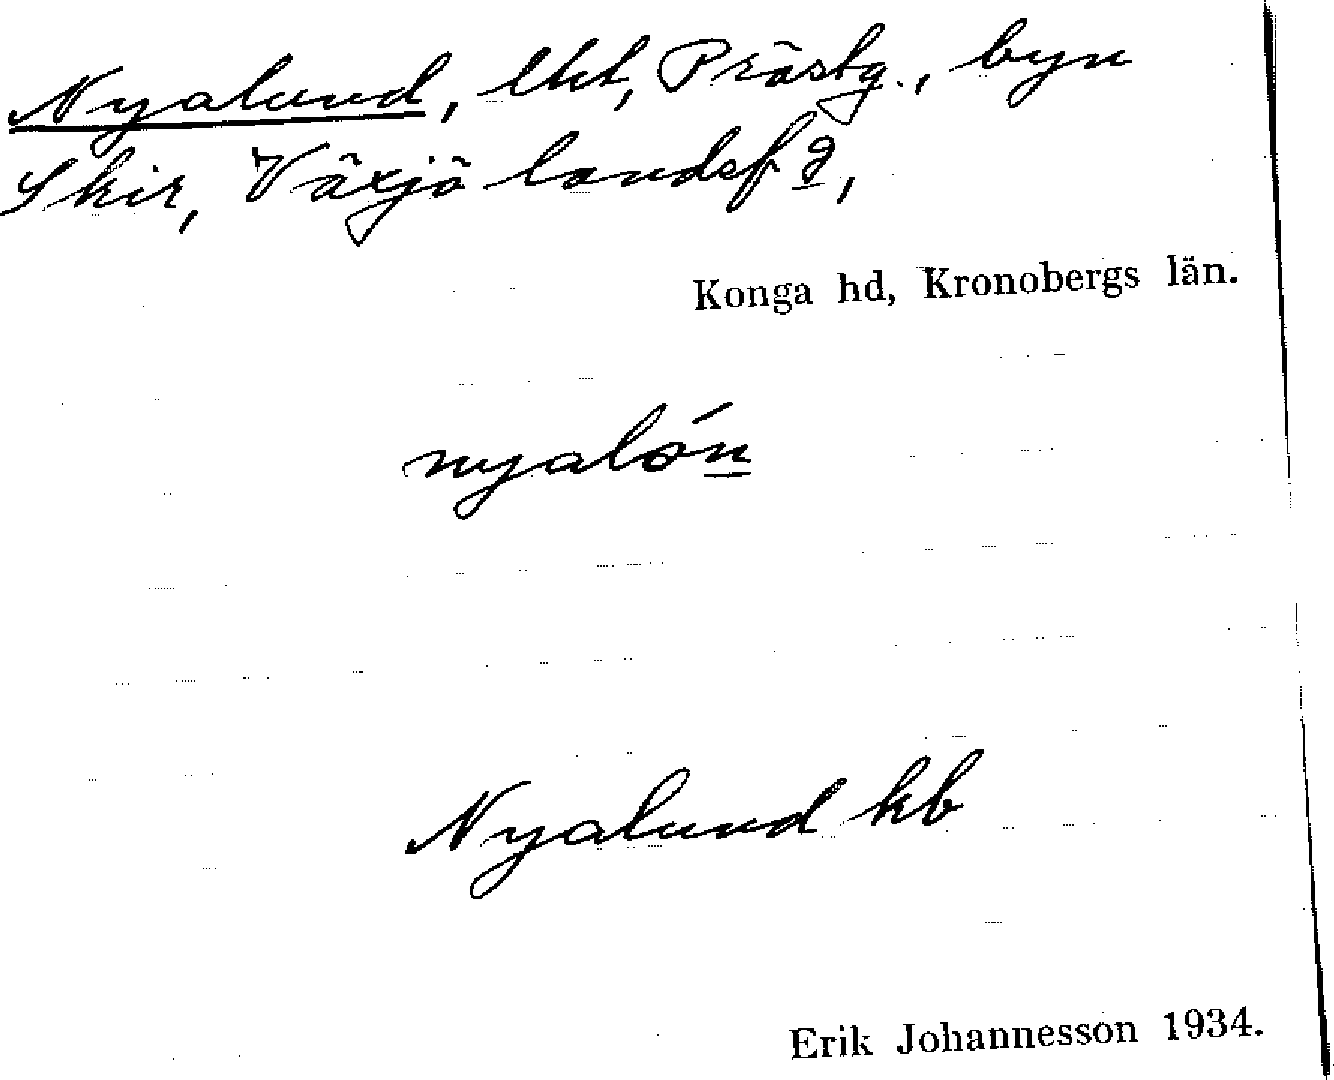 Nyalund, lht, Prästg., byn
Skir, Växjö landsf d,
Konga hd, Kronobergs län.
nyalón
Nyalund kb
Erik Johannesson 1934.